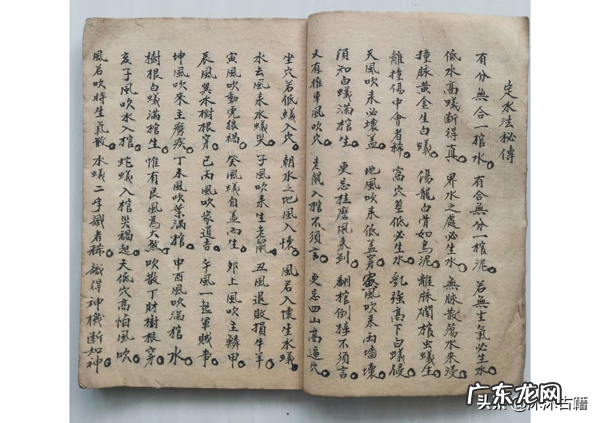 定水法秘傳
有分無合一棺水。有合無分一棺泥。若無生氣必生水。
低水高蟻斷得真。界水之處必生水。無脉散蕩水來浸。
撞脉黃金生白蟻。傷龍白骨如烏泥。離脉棺虫蟻生。
離撞傷中會者稀。窩穴墓低必生水。乳強高下白蟻侵。
天風吹來必壞蓋。地風吹來低蓋穿。風吹來兩墻壞。
須知白蟻滿棺生。更忌風來到。翻棺倒槨不須言。
天有車風吹穴。老鼠入棺不須言。更忌四山高逼穴。
坐穴若低蟻入穴。朝水之地風入懷。風若入懷生水蟻。
水去風來水蟻哭。子風吹來生老鼠。丑風退敗損牛羊。
寅風吹動虎狼禍。癸風蟻自蓋而生。卯上風吹主鱗甲。
辰風巽水樹根穿。巳丙風吹家道吉。午風一軍賊事。
坤風吹來主疾。丁未風吹葉滿棺。申酉風吹滿棺水。
樹根白蟻滿棺生。惟有艮風為天煞。吹散丁財樹根穿。
亥子風吹水入棺。蛇蟻入棺哭禍起。天低穴高怕風吹。
風若吹時生氣散。水蟻二字識者稀。識得神機斷如神。
头条@沐沐古籍
广东龙网